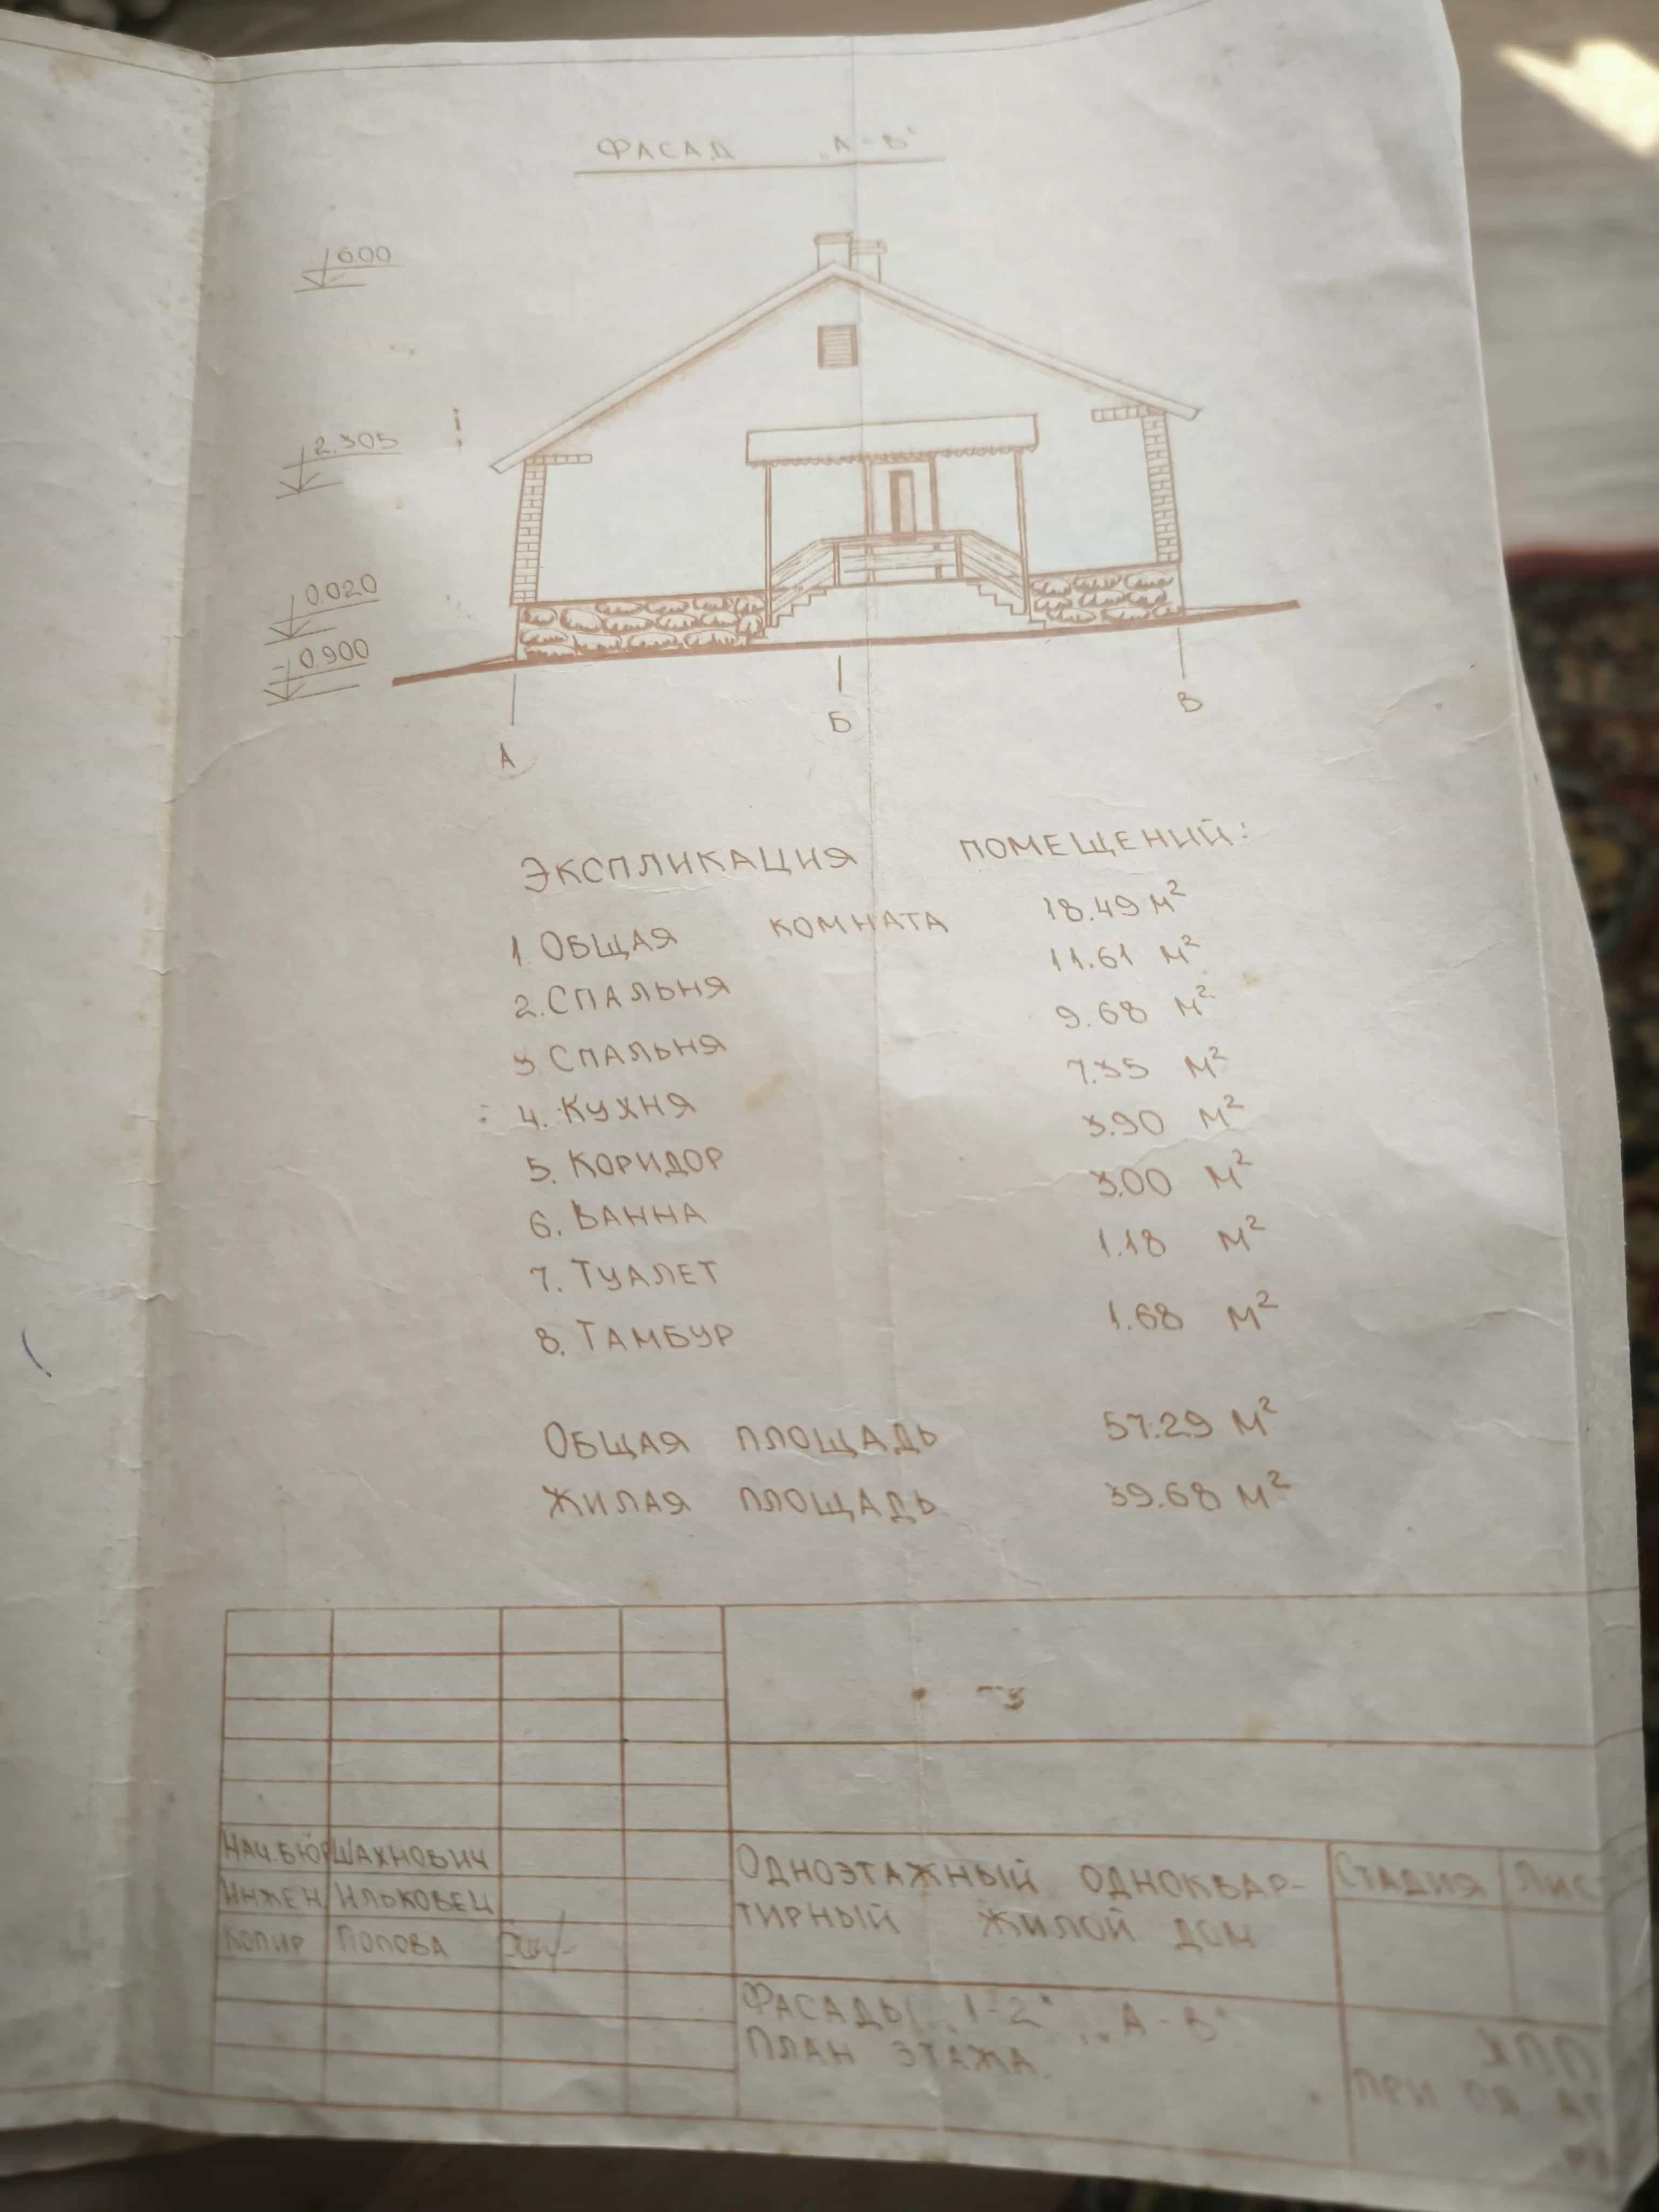 ФАСАД „А-В"
600
2.305
0.020
-0.900
А
Б
В
ЭКСПЛИКАЦИЯ ПОМЕЩЕНИЙ:
1 ОБЩАЯ КОМНАТА 18.49 М²
2. СПАЛЬНЯ 11.61 М²
3 СПАЛЬНЯ 9.68 М²
4. КУХНЯ 7.35 М²
5. КОРИДОР 3.90 М²
6. ВАННА 3.00 М²
7. ТУАЛЕТ 1.18 М²
8. ТАМБУР 1.68 М²
ОБЩАЯ ПЛОЩАДЬ 57.29 М²
ЖИЛАЯ ПЛОЩАДЬ 39.68 М²
НАЧ.БЮР ШАХНОВИЧ
ИНЖЕН ИЛЬКОВЕЦ
КОПИР ПОПОВА
ОДНОЭТАЖНЫЙ ОДНОКВАР-
ТИРНЫЙ ЖИЛОЙ ДОМ
СТАДИЯ ЛИС
ФАСАДЫ „1-2", „А-В"
ПЛАН ЭТАЖА.
ХПП
ПРИ